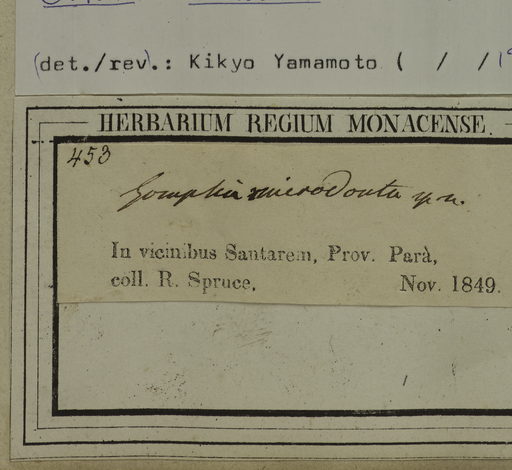 (det./rev).: Kikyo Yamamoto ( / /19
HERBARIUM REGIUM MONACENSE.
453
Gomphia microdonta sp. n.
In vicinibus Santarem, Prov. Parà,
coll. R. Spruce. Nov. 1849.